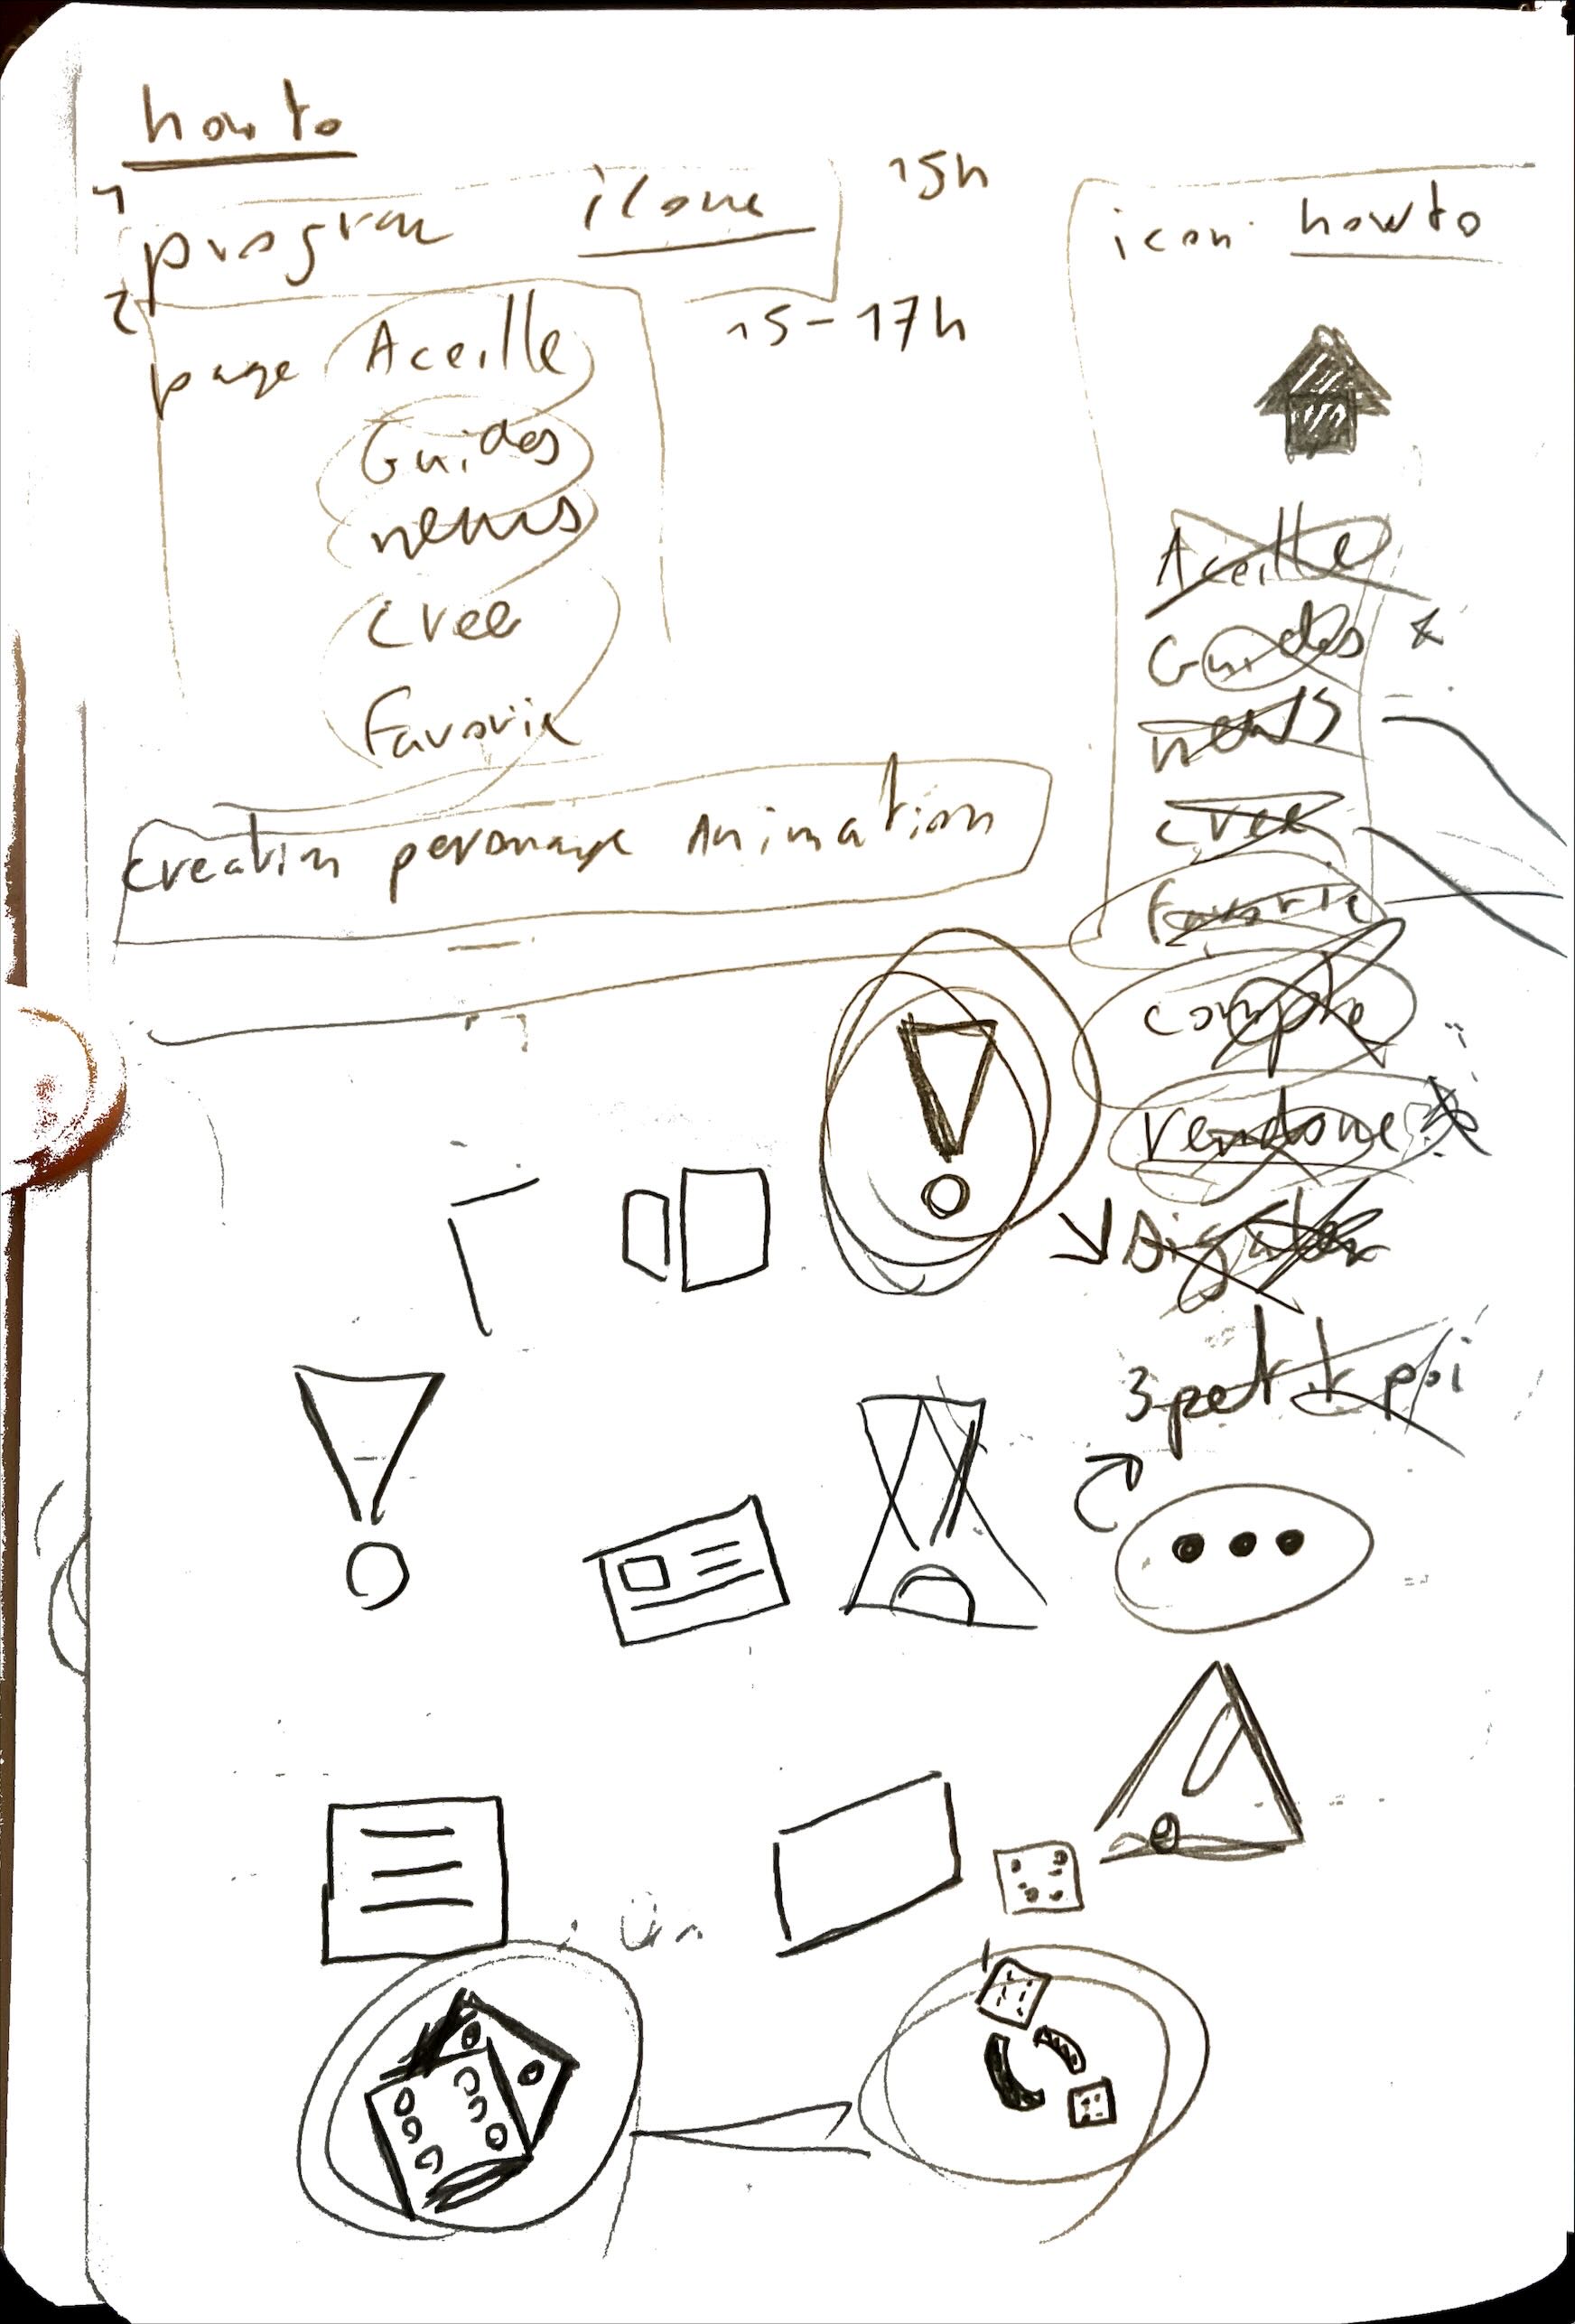 how to
1 program icone 15h
2 page Aceille 15-17h
Guides
news
cree
Favorie
creation personage Animation
icon howto
Aceille
Guides
news
cree
Favorie
compte
3 petit poi